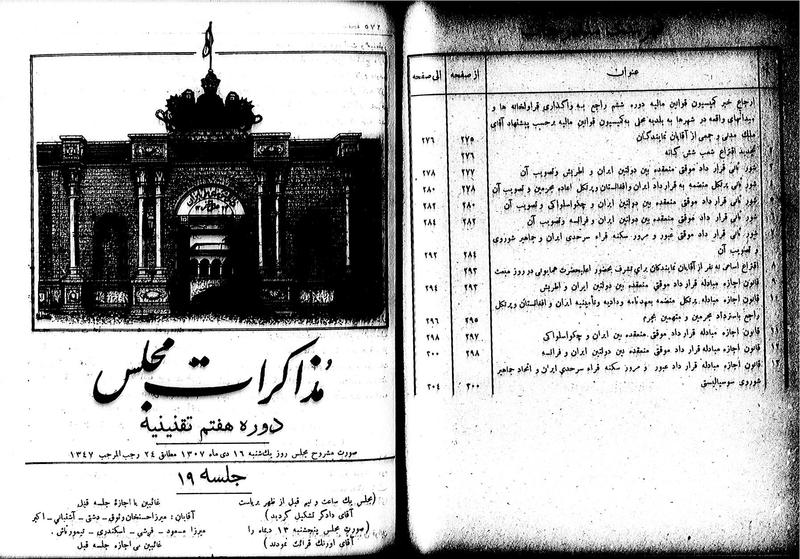 عنوان
از صفحه
الی صفحه
ارجاع خبر کمیسیون قوانین مالیه دوره ششم راجع به واگذاری قراولخانه ها و
میدانهای واقعه در شهرها به بلدیه محلی به کمیسیون قوانین مالیه برحسب پیشنهاد آقای
ملک مدنی و جمعی از آقایان نمایندگان ۲۷۵ ۲۷۶
تجدید اقتراع شعب شش گانه ۲۷۶
شور ثانی قرار داد موقتی منعقده بین دولتین ایران و اطریش و تصویب آن ۲۷۷ ۲۷۸
شور ثانی پرتکل منضمه به قرارداد ایران و افغانستان و پرتکل اعاده مجرمین و تصویب آن ۲۷۸ ۲۸۰
شور ثانی قرار داد موقتی منعقده بین دولتین ایران و چکواسلواکی و تصویب آن ۲۸۰ ۲۸۲
شور ثانی قرار داد موقتی منعقده بین دولتین ایران و فرانسه و تصویب آن ۲۸۲ ۲۸۴
شور ثانی قرار داد موقتی عبور و مرور سکنه قراء سرحدی ایران و جماهیر شوروی
و تصویب آن ۲۸۴ ۲۹۲
اقتراع اسامی نه نفر از آقایان نمایندگان برای تشرف بحضور اعلیحضرت همایونی در روز مبعث ۲۹۳
قانون اجازه مبادله قرار داد موقتی منعقده بین دولتین ایران و اطریش ۲۹۳ ۲۹۴
قانون اجازه مبادله پرتکل منضمه بعهدنامه ودادیه و تأمینیه ایران و افغانستان و پرتکل
راجع باسترداد مجرمین و متهمین بجرم ۲۹۵ ۲۹۶
قانون اجازه مبادله قرار داد موقتی منعقده بین ایران و چکواسلواکی ۲۹۷ ۲۹۸
قانون اجازه مبادله قرار داد موقتی منعقده بین دولتین ایران و فرانسه ۲۹۸ ۳۰۰
قانون اجازه مبادله قرار داد عبور و مرور سکنه قراء سرحدی ایران و اتحاد جماهیر
شوروی سوسیالیستی ۳۰۰ ۳۰۴
مذاکرات مجلس
دوره هفتم تقنینیه
صورت مشروح مجلس روز یك‌شنبه ۱۶ دی ماه ۱۳۰۷ مطابق ۲۴ رجب المرجب ۱۳۴۷
جلسه ۱۹
(مجلس یك ساعت و نیم قبل از ظهر بریاست
آقای دادگر تشکیل گردید)
(صورت مجلس پنجشنبه ۱۳ دیماه را
آقای اورنگ قرائت نمودند)
غائبین با اجازه جلسه قبل
آقایان: میرزا حسنخان وثوق - دشتی - آشتیانی - اکبر
میرزا مسعود - فرشی - اسکندری - تیمورتاش.
غائبین بی اجازه جلسه قبل